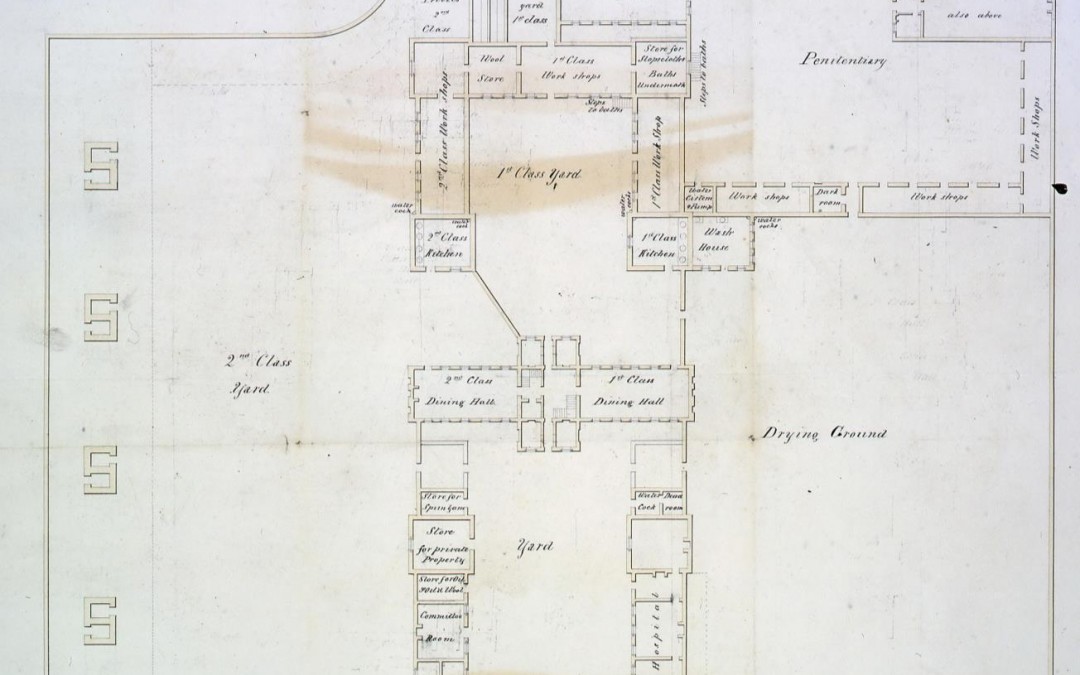 2nd
Class
yard
1st class
also above
Wool
Store
1st Class
Work shops
Store for
Slopclothes
Baths
Underneath
Steps to baths
Steps
to baths
Penitentiary
Work Shops
2nd Class Work shops
1st Class Yard
1st Class Work Shop
water
cock
water
cock
water
cocks
Water
Cistern
& Pump
Work shops
Dark
room
Work shops
water
cocks
2nd Class
Kitchen
1st Class
Kitchen
Wash
House
2nd Class
Yard
2nd Class
Dining Hall
1st Class
Dining Hall
Drying Ground
Store for
Spun Yarn
Water
Cock
Dead
room
Store
for private
Property
Yard
Store for Oil
Committee
Room
Hospital